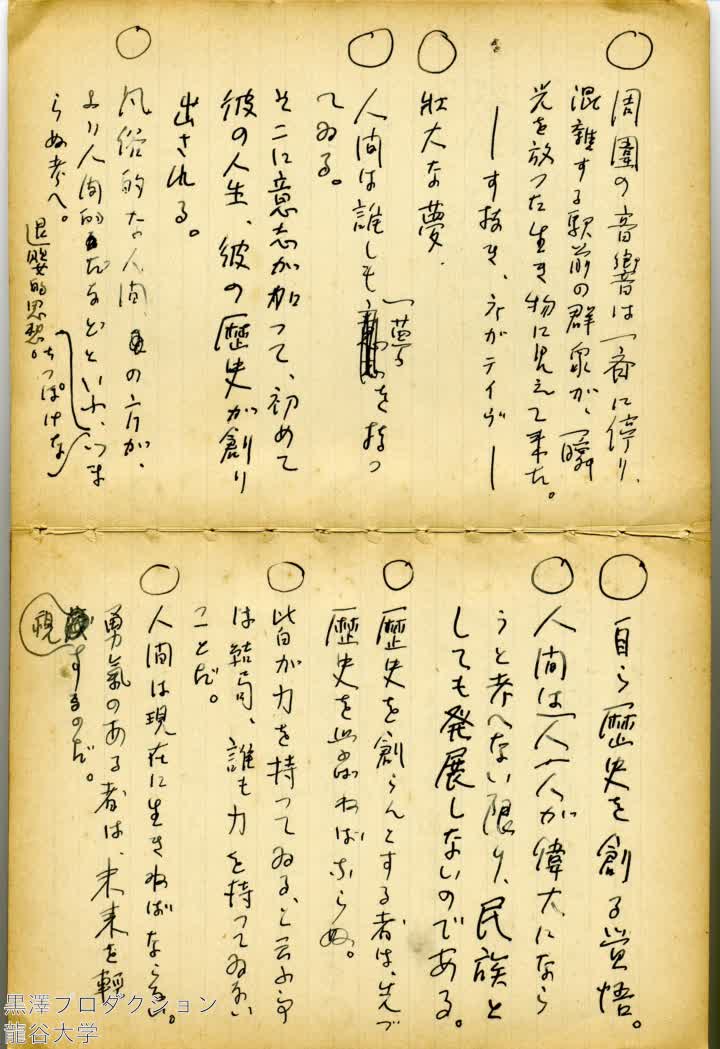 ○ 周圍の音響は一斉に停り、
混雜する駅前の群衆が、一瞬
光を放つた生き物に見えて来た。
―すぢき、ネガティヴ―
○ 壮大な夢、
○ 人間は誰しも夢を持つ
てゐる。
そこに意志が加つて、初めて
彼の人生、彼の歴史が創り
出される。
○ 風俗的な人間、の方が、
より人間的だなどといふ、つま
らぬ考へ。
ちつぽけな
退嬰的思想。
○ 自ら歴史を創る覚悟。
○ 人間は一人一人が偉大になら
うと考へない限り、民族と
しても発展しないのである。
○ 歴史を創らんとする者は、先づ
歴史を学ばねばならぬ。
○ 皆が力を持つてゐる、と云ふ事
は結局、誰も力を持つてゐない
ことだ。
○ 人間は現在に生きねばならない。
勇氣のある者は、未来を輕
視するのだ。
黒澤プロダクション
龍谷大学